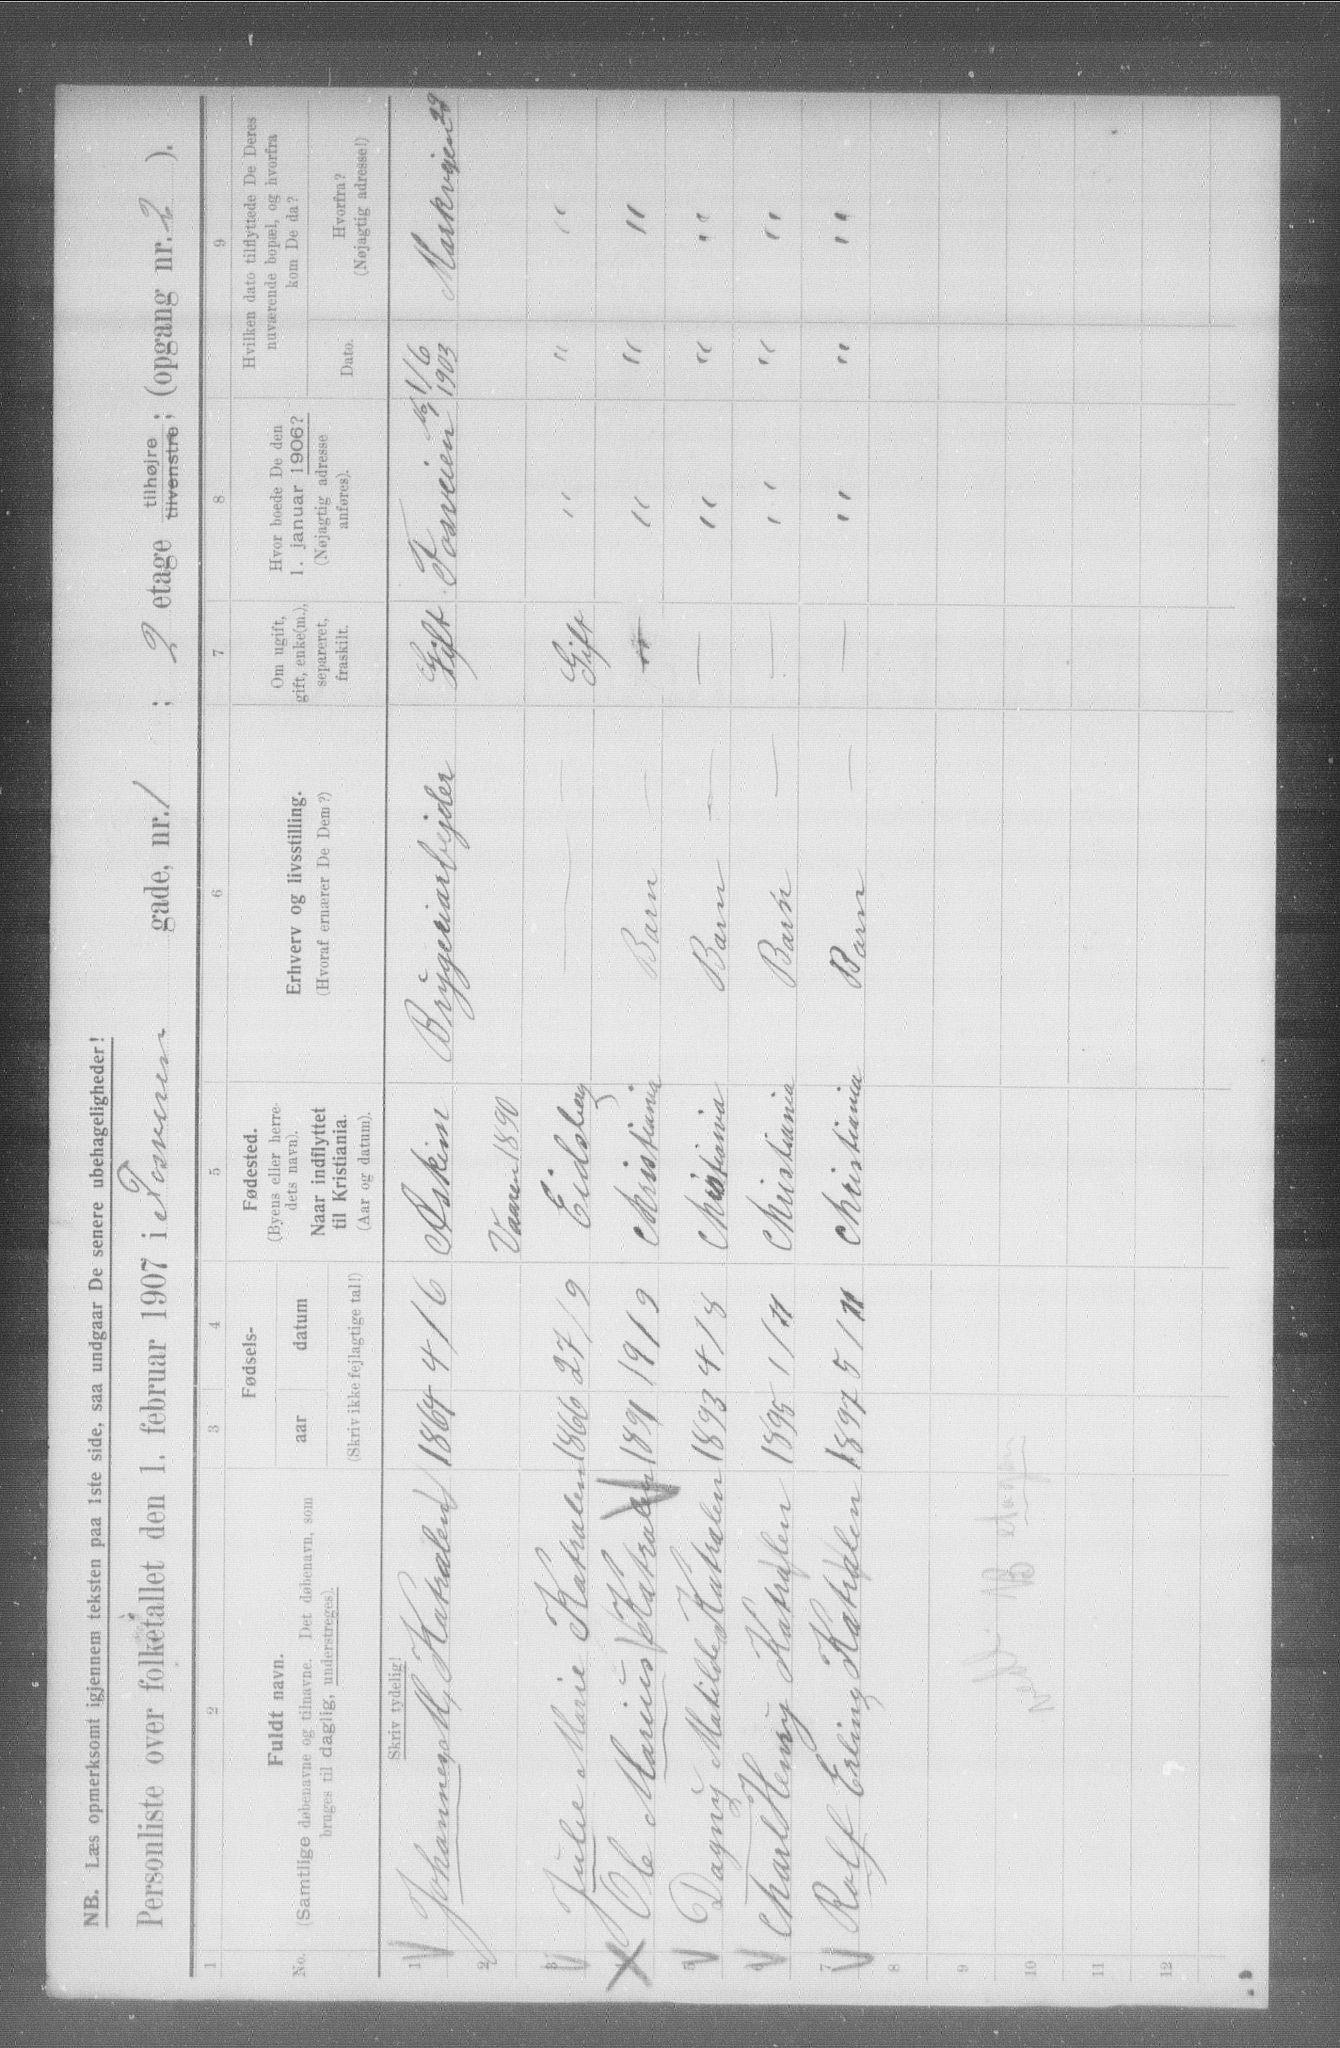 NB. Læs opmerksomt igjennem teksten paa 1ste side, saa undgaar De senere ubehageligheder!
Personliste over folketallet den 1. februar 1907 i Fosveien gade, nr. 1 ; 2 etage tilhøjre tilvenstre; (opgang nr. 2 ).
1 2 3 4 5 6 7 8 9
No.
Fuldt navn.
(Samtlige døbenavne og tilnavne. Det døbenavn, som
bruges til daglig, understreges).
Fødsels-
aar datum
(Skriv ikke fejlagtige tal!)
Fødested.
(Byens eller herre-
dets navn).
Naar indflyttet
til Kristiania.
(Aar og datum).
Erhverv og livsstilling.
(Hvoraf ernærer De Dem?)
Om ugift,
gift, enke(m.),
separeret,
fraskilt.
Hvor boede De den
1. januar 1906?
(Nøjagtig adresse
anføres).
Hvilken dato tilflyttede De Deres
nuværende bopæl, og hvorfra
kom De da?
Dato.
Hvorfra?
(Nøjagtig adresse!)
Skriv tydelig!
1 Johannes M. Katralen 1864 4/6 Askim Bryggeriarbejder Gift Fosveien No 1 1/6 1903 Markveien 28
2 Vaaren 1890
3 Julie Marie Katralen 1866 27/9 Eidsberg — Gift " " "
Ole Marius Katralen 1891 19/9 Christiania Barn — " " " "
5 Dagny Matilde Katralen 1893 4/8 Christiania Barn — — " " "
6 Charl Henry Katralen 1895 1/11 Christiania Barn — — " " "
7 Rolf Erling Katralen 1897 5/11 Christiania Barn — — " " "
8
9
10
11
12